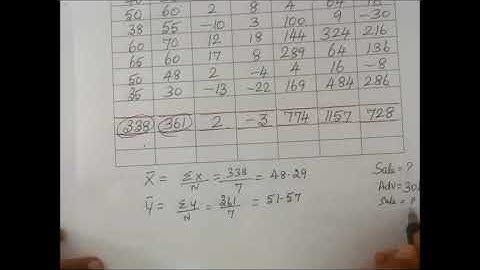 40 50 -8 -2 64 4 16
50 60 2 8 4 64 16
38 55 -10 3 100 9 -30
60 70 12 18 144 324 216
65 60 17 8 289 64 136
50 48 2 -4 4 16 -8
35 30 -13 -22 169 484 286
338 361 2 -3 774 1157 728
X̄ = ΣX/N = 338/7 = 48.29
Ȳ = ΣY/N = 361/7 = 51.57
Sale = ?
Adv = 30
Sale = ?